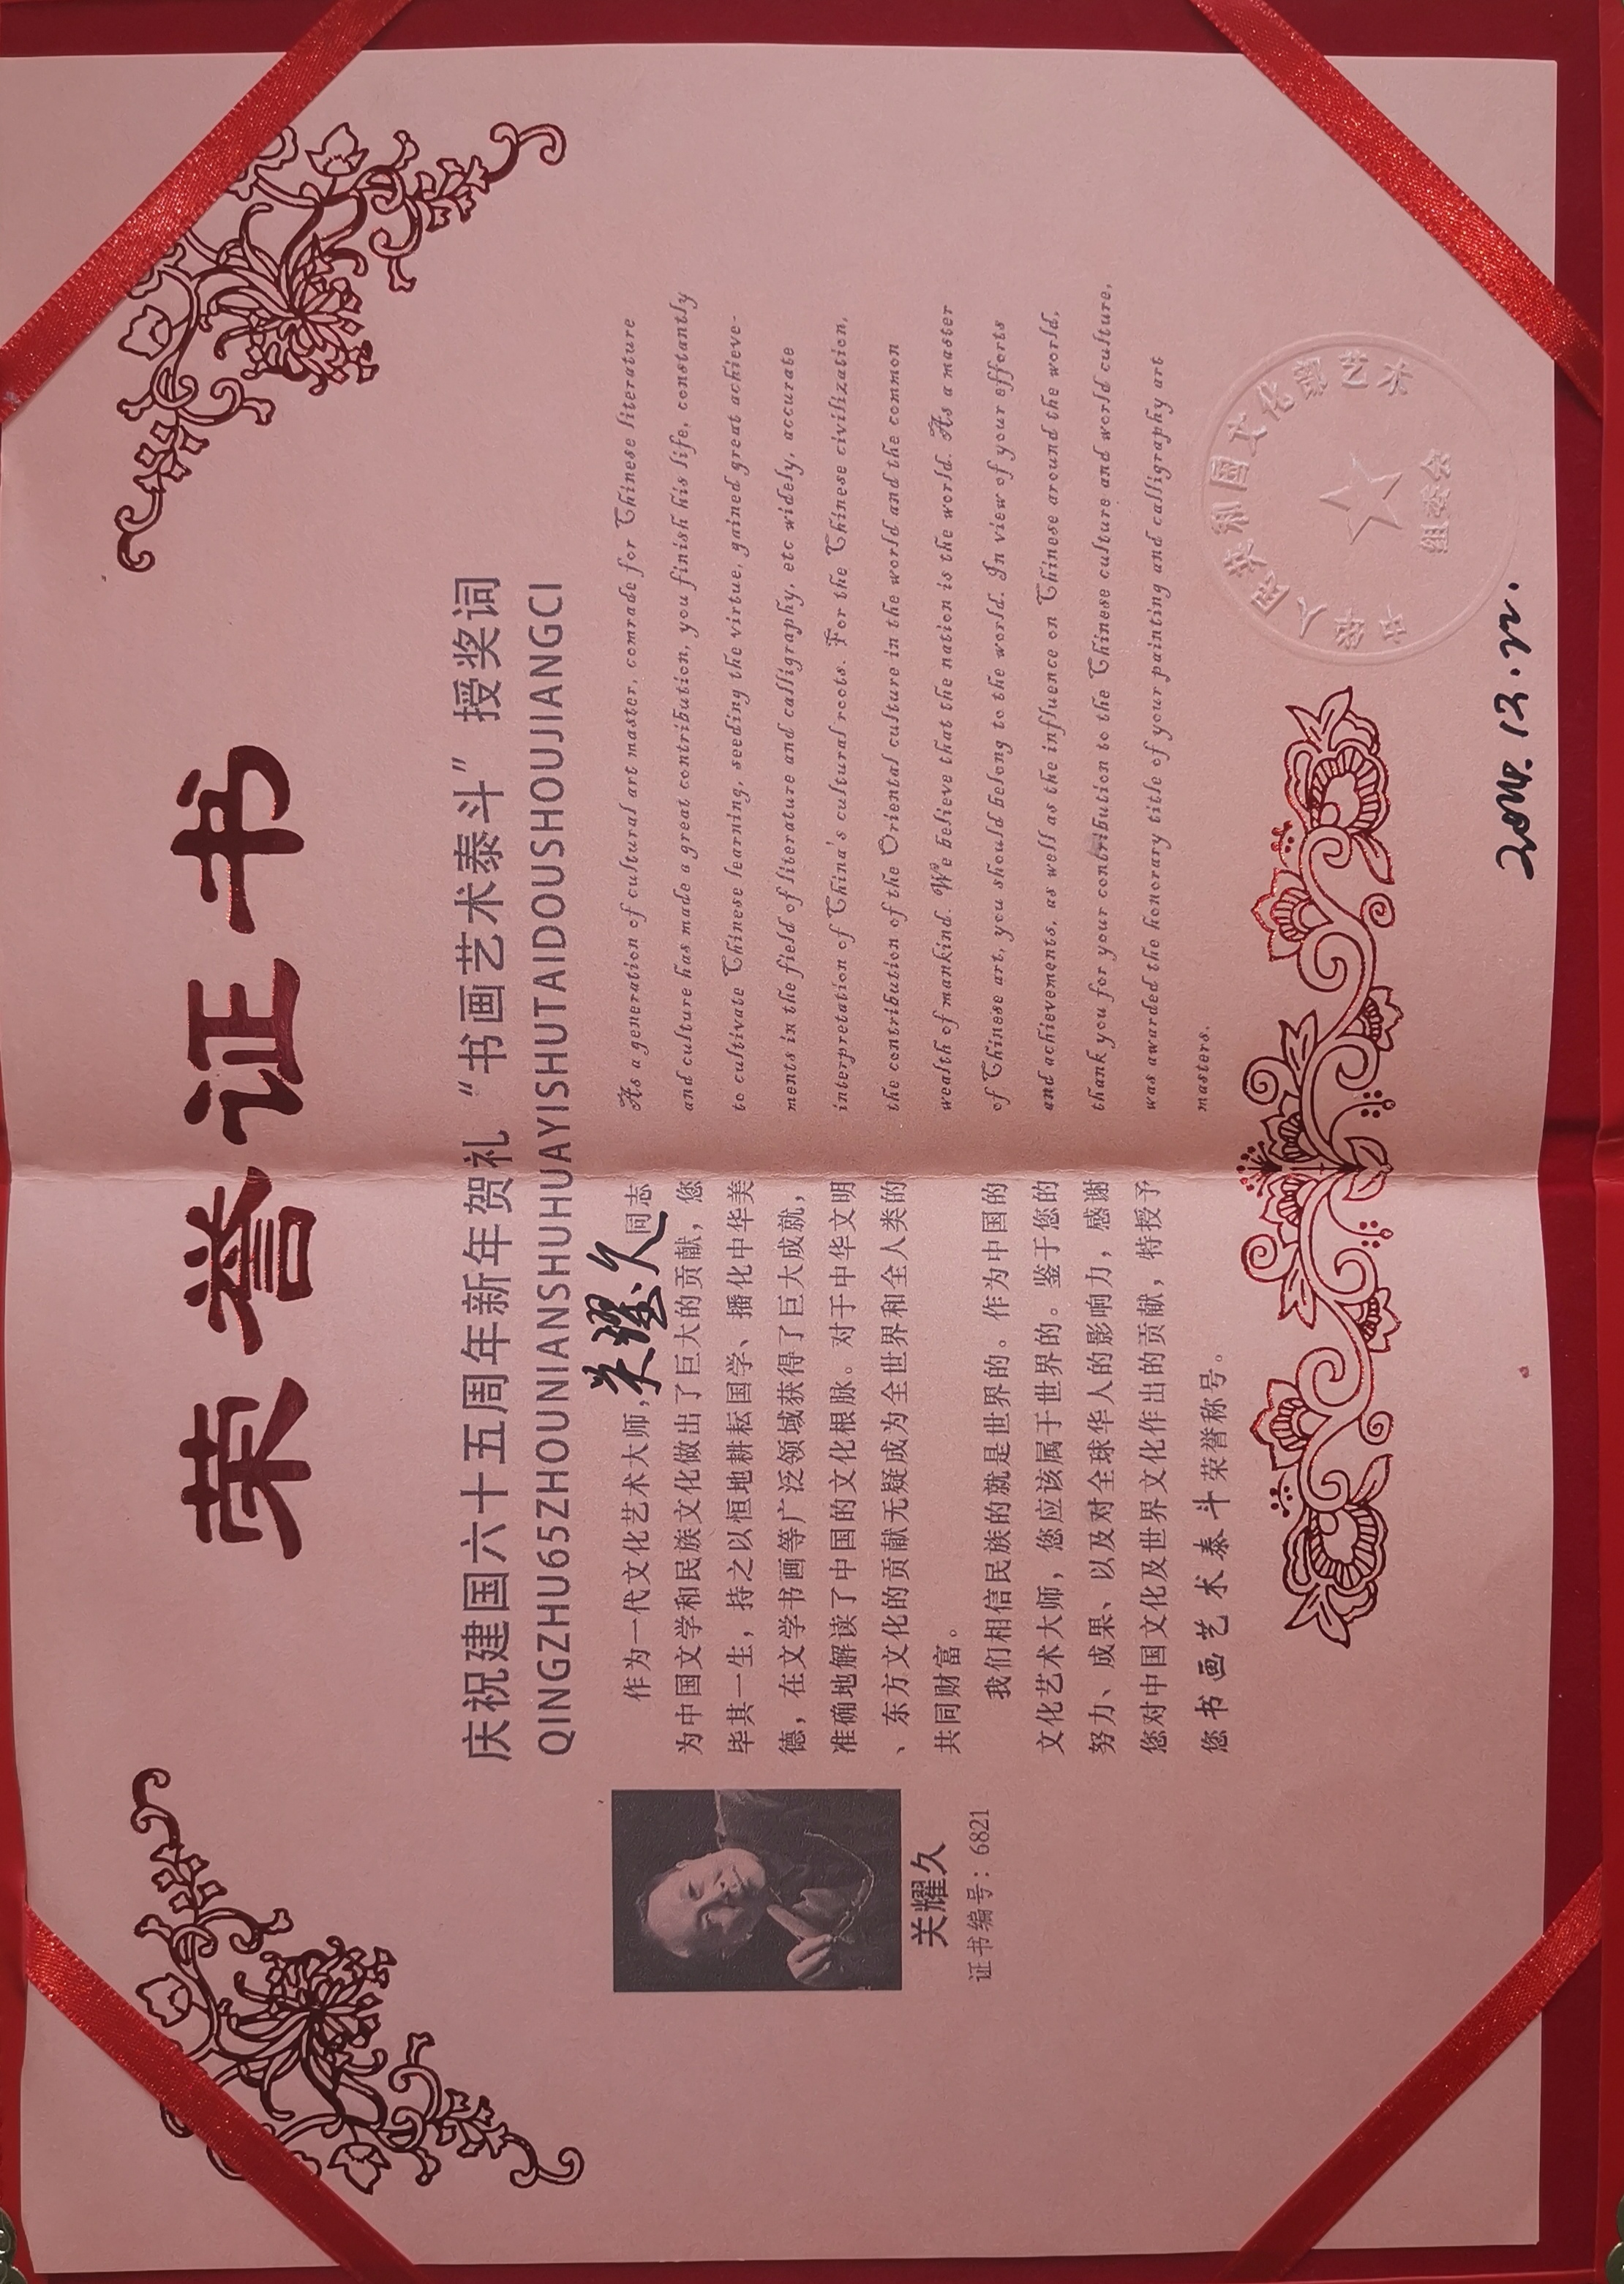 荣誉证书
庆祝建国六十五周年新年贺礼“书画艺术泰斗”授奖词
QINGZHU65ZHOUNIANSHUHUAYISHUTAIDOUSHOUJIANGCI
关耀久
证书编号：6821
作为一代文化艺术大师，关耀久同志
为中国文学和民族文化做出了巨大的贡献，您
毕其一生，持之以恒地耕耘国学、播化中华美
德，在文学书画等广泛领域获得了巨大成就，
准确地解读了中国的文化根脉。对于中华文明
、东方文化的贡献无疑成为全世界和全人类的
共同财富。
我们相信民族的就是世界的。作为中国的
文化艺术大师，您应该属于世界的。鉴于您的
努力、成果、以及对全球华人的影响力，感谢
您对中国文化及世界文化作出的贡献，特授予
您书画艺术泰斗荣誉称号。
As a generation of cultural art master, comrade for Chinese literature
and culture has made a great contribution, you finish his life, constantly
to cultivate Chinese learning, seeding the virtue, gained great achieve-
ments in the field of literature and calligraphy, etc widely, accurate
interpretation of China's cultural roots. For the Chinese civilization,
the contribution of the Oriental culture in the world and the common
wealth of mankind. We believe that the nation is the world. As a master
of Chinese art, you should belong to the world. In view of your efforts
and achievements, as well as the influence on Chinese around the world,
thank you for your contribution to the Chinese culture and world culture,
was awarded the honorary title of your painting and calligraphy art
masters.
中华人民共和国文化部
组委会
2014.12.22.